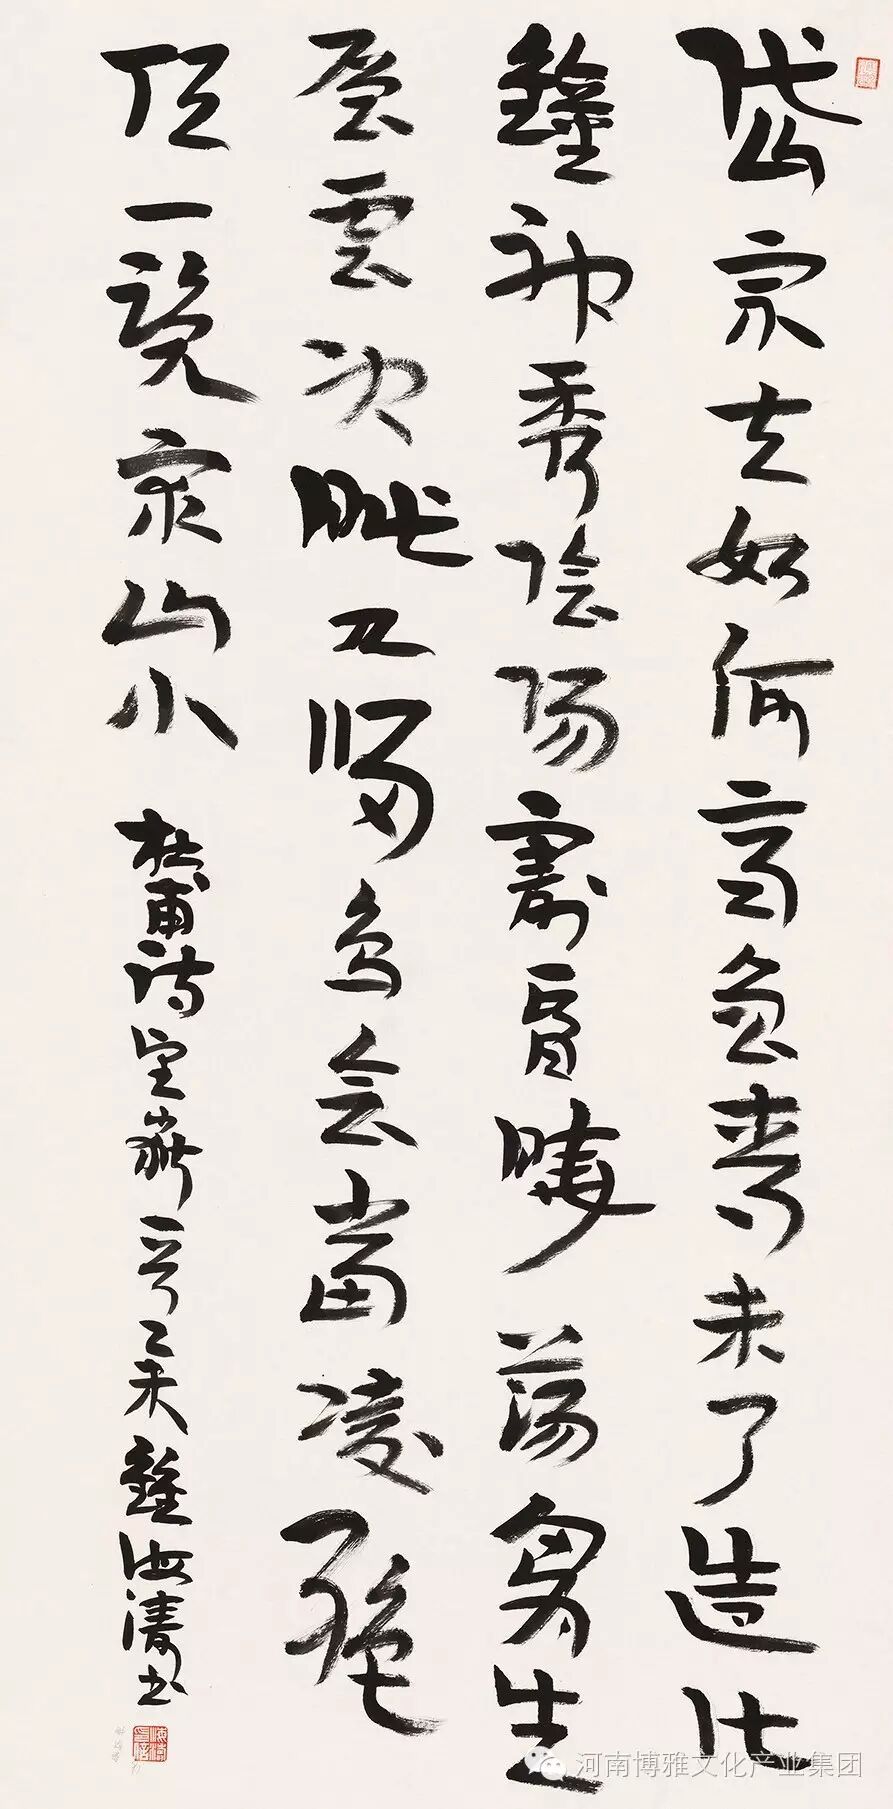 岱宗夫如何齊魯青未了造化
鐘神秀陰陽割昏曉蕩胸生
層雲決眥入歸鳥會當凌絕
頂一覽眾山小
杜甫詩望嶽一首乙未鐘海濤书
河南博雅文化产业集团